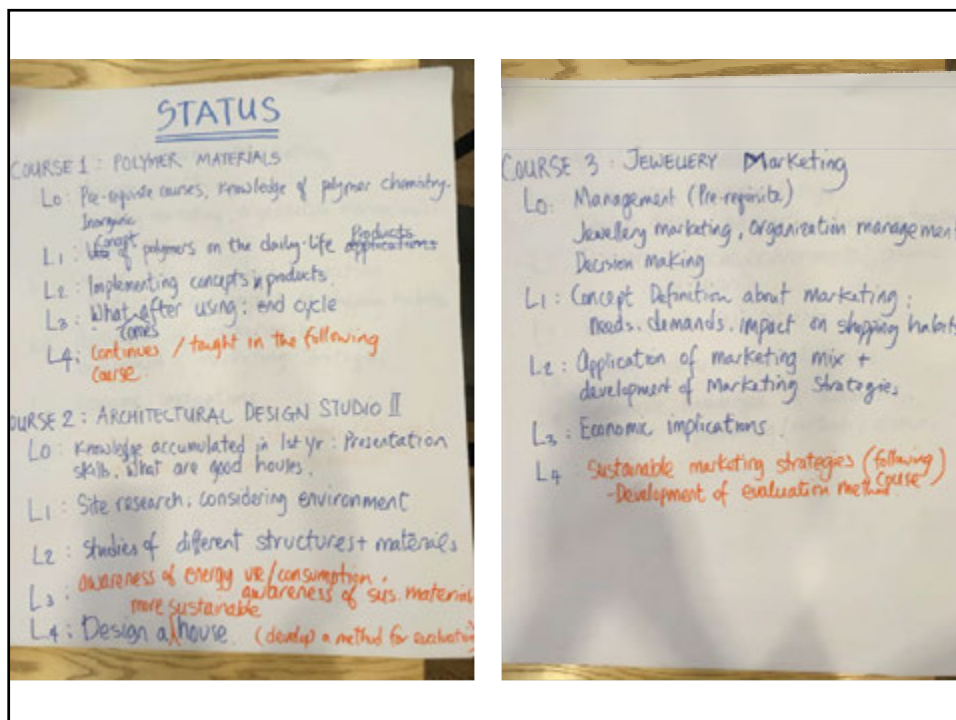 STATUS
COURSE 1 : POLYMER MATERIALS
L0 : Pre-requisite courses, knowledge of polymer chemistry.
Inorganic
Concept Products
L1 : Use of polymers on the daily-life applications
L2 : Implementing concepts in products.
L3 : What after using : end cycle
comes
L4 : continues / taught in the following
course.
OURSE 2 : ARCHITECTURAL DESIGN STUDIO II
L0 : Knowledge accumulated in 1st yr : Presentation
skills. What are good houses.
L1 : Site research, considering environment
L2 : Studies of different structures + materials
L3 : awareness of energy use/consumption,
awareness of sus. material
more sustainable
L4 : Design a house. (develop a method for evaluation)
COURSE 3 : JEWELLERY Marketing
L0 : Management (Pre-requisite)
Jewellery marketing, organization management
Decision making
L1 : Concept Definition about marketing :
needs, demands, impact on shopping habits
L2 : Application of marketing mix +
development of Marketing Strategies.
L3 : Economic implications.
L4 Sustainable marketing strategies (following
course)
-Development of evaluation method